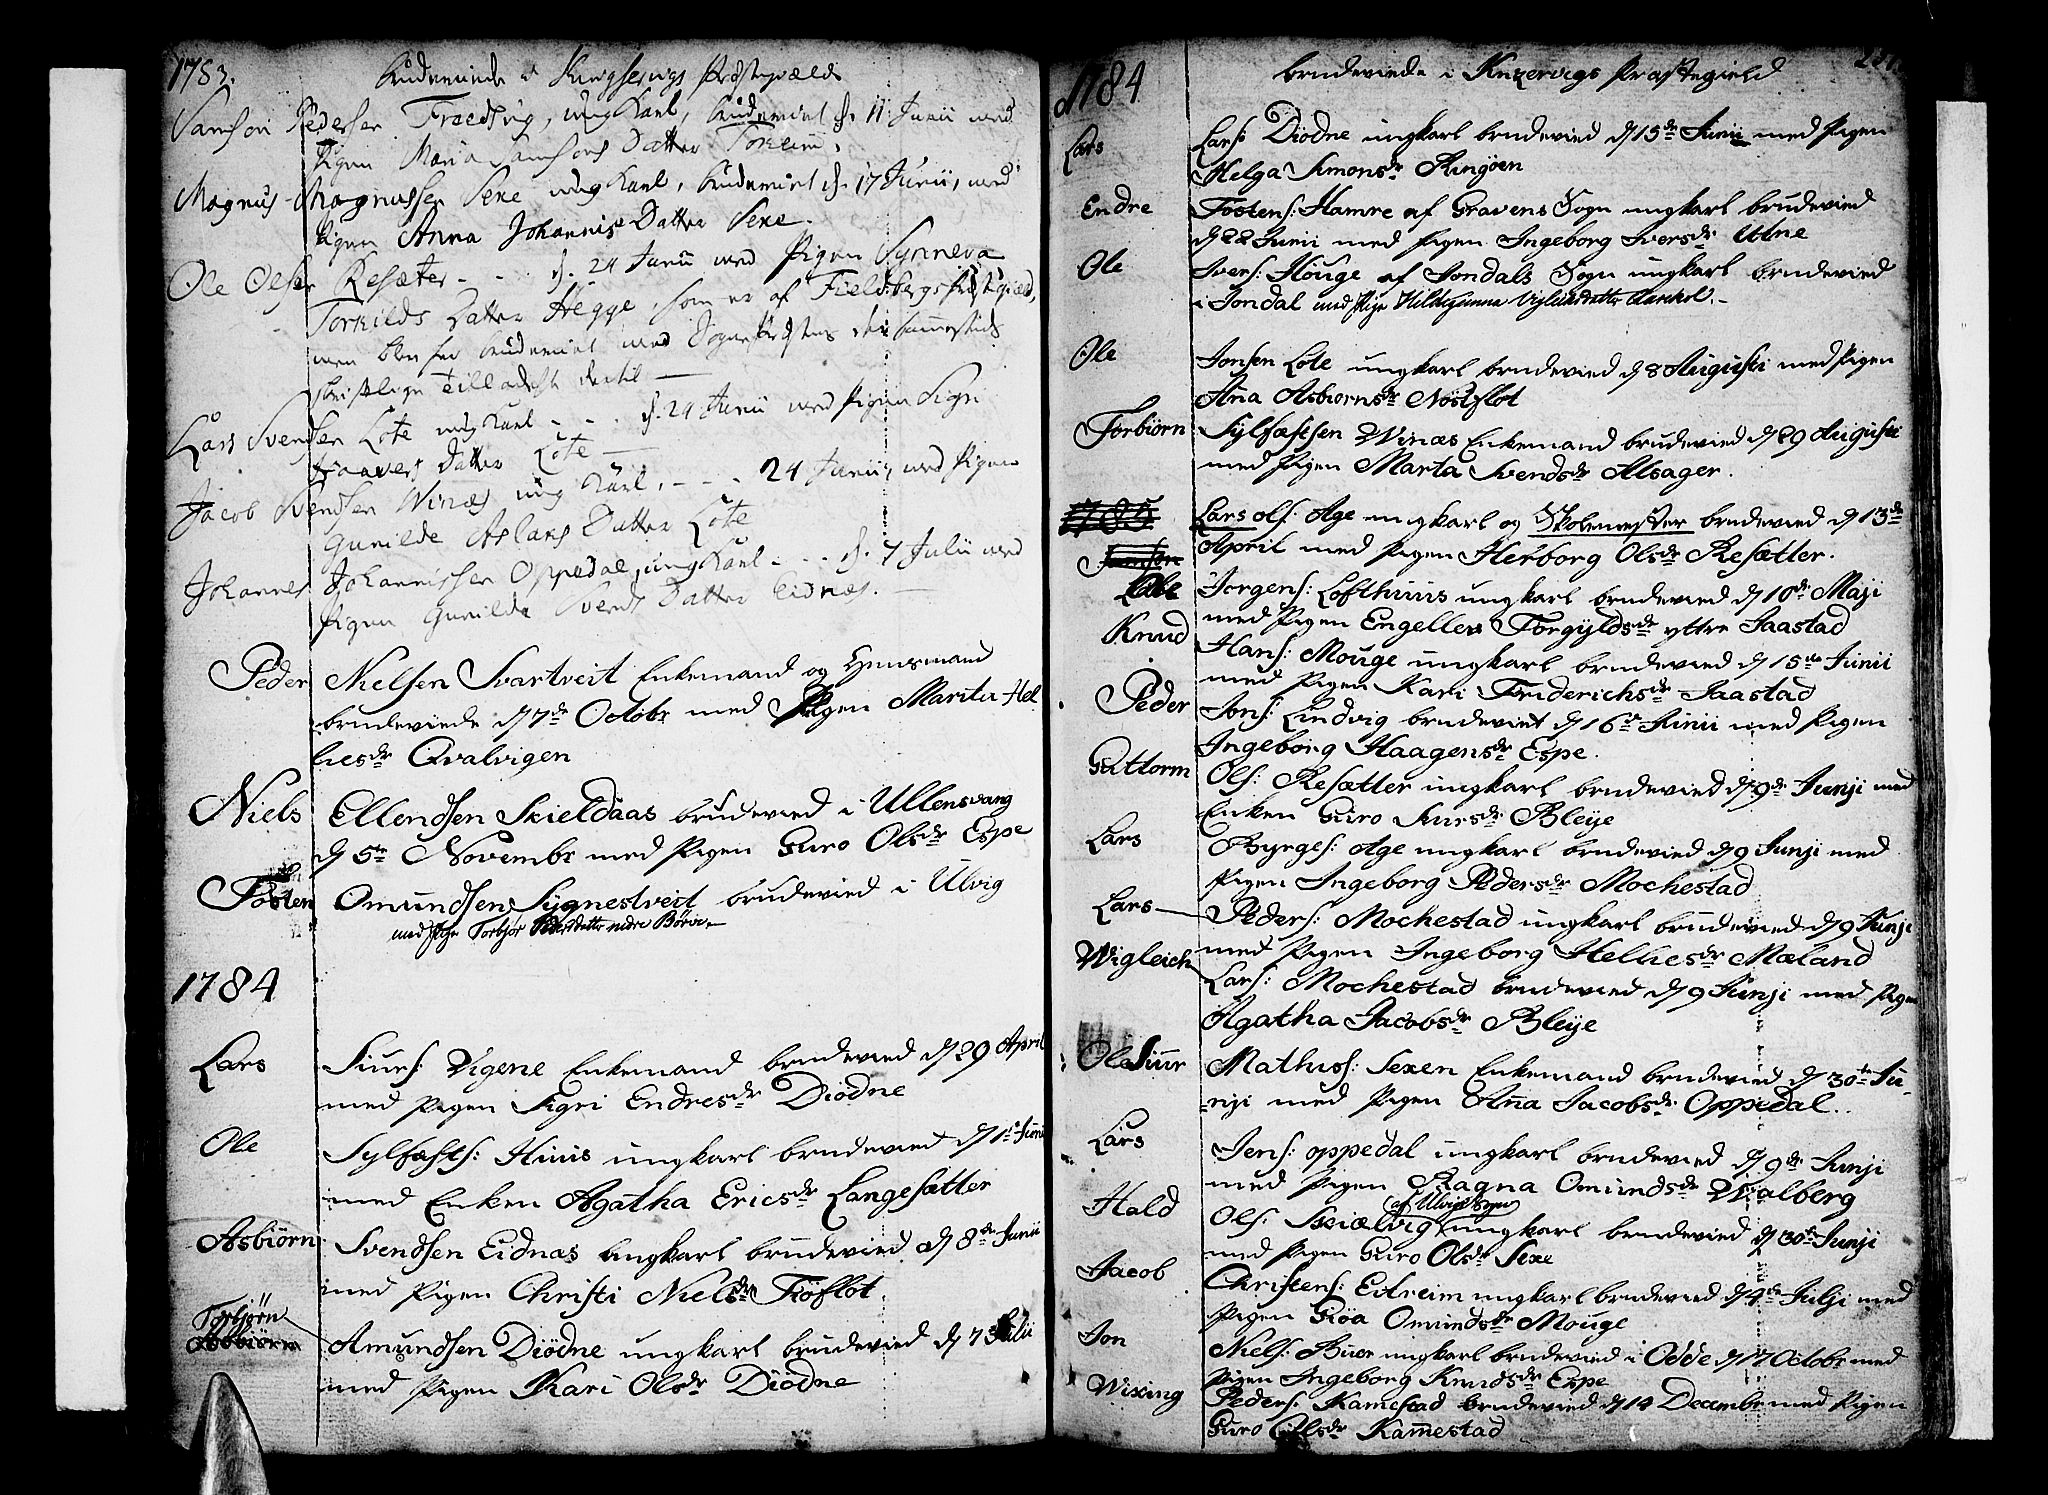 1783. Brudeviede i Kingservigs Præstegield
Samson Pedersen Fræsvig, ungKarl, brudeviet d. 11 Junii med
Pigen Maria Samsons Datter Torkum,
Magnus Magnussen Sexe ungKarl, brudeviet d. 17 Junii, med
Pigen Anna Johannis Datter Sexe.
Ole Olsen Resæter - - - d. 24 Junii med Pigen Synneva
Torkilds Datter Hegge, som er af Præstegield,
men blev her brudeviet med Sognepræstens der sammesteds
skriftlige Tilladelse dertil —
Lars Svendsen Lote ungKarl - - - d. 24 Junii med Pigen Sigri
Haavers Datter Lote —
Jacob Svendsen Winæs ung Karl, - - - 24 Junii, med Pigen
Gunilde Aslaks Datter Lote
Johannes Johannissen Oppedal, ungKarl - - - d. 7 Julii med
Pigen Gunilde Svends Datter Eidnæs. —
Peder Nielsen Svartveit Enkemand og Huusmand
brudeviede d 7de Octobr med Pigen Marita Hel
liesdr Qvalvigen
Niels Ellendsen Skieldaas brudevied i Ullensvang
d 5te Novembr med Pigen Guro Olsdr Espe
Tosten Omundsen Sygnestveit brudevied i Ulvig
med Pige Torbjør Pedersdatter nedre Børve
1784
Lars Siurs: Vigene Enkemand brudevied d 29 April
med Pigen Sigri Endresdr Diödne
Ole Sylfæsts: Huus ungkarl brudevied d 1te Junii
med Enken Agatha Ericsdr Langesætter
Asbiörn Svendsen Eidnæs ungkarl brudevied d 8de Junii
med Pigen Christi Nielsdr Tiöflot.
Torbjørn
Asbiörn Amundsen Diödne ungkarl brudevied d 7 Julii
med Pigen Kari Olsdr Diödne
1784 brudeviede i Kinzervigs Præstegield
Lars Lars: Diödne ungkarl brudevied d 15de Junii med Pigen
Helga Simonsdr Ringöen
Endre Tostens: Hamre af Gravens Sogn ungkarl brudevied
d 22 Junii med Pigen Ingeborg Iversdr Utne
Ole Ivers: Houge af Jondals Sogn ungkarl brudevied
i Jondal med Pige Hildegunna Viglicksdatter -
Ole Jonsen Lote ungkarl brudevied d 8 Augusti med Pigen
Ana Asbiörnsdr Nöstflot
Torbiörn Sylfæstsen Winæs Enkemand brudevied d 29 Augusti
med Pigen Marta Svendsdr Alsager.
1785 Lars Ols: Age ungkarl og Skolemester brudevied d 13de
April med Pigen Herborg Olsdr Resætter.
Jorgens: Lofthuus ungkarl brudevied d 10de Maji
med Pigen Engelles Torgyldsdr yttre Jaastad
Knud Hans: Mouge ungkarl brudevied d 15de Junii
med Pigen Kari Friderichsdr Jaastad
Peder Jons: Lindvig brudeviet d 16de Junii med Pigen
Ingeborg Haagensdr Espe.
Guttorm Ols: Resætter ungkarl brudevied d 9de Junji med
Enken Guro Siursdr Bleÿe
Lars Byrges: Age ungkarl brudevied d 9 Junji med
Pigen Ingeborg Pedersdr Mochestad
Lars Peders: Mochestad ungkarl brudevied d 9 Junji
med Pigen Ingeborg Helliesdr Mæland
Wigleich Lars: Mochestad brudevied d 9 Junji med Pigen
Agatha Jacobsdr Bleÿe
Siur Mathiss: Sexen Enkemand brudevied d 30te Ju-
-nji med Pigen Anna Jacobsdr Oppedal.
Lars Jens: oppedal ungkarl brudevied d 9de Junji
med Pigen Ragna Omundsdr Walberg
af Ulvigs Sogn
Hald Ols: Skiælvig ungkarl brudevied d 30te Junji
med Pigen Guro Olsdr Sexe
Jacob Christens: Eitreim ungkarl brudevied d 4de Julji med
Pigen Gröa Omundsdr Mouge
Jon Niels: Buer ungkarl brudevied i Odde d 17 Octobr med
Pigen Ingeborg Knudsdr Espe
Wixing Peders: Kamestad brudevied d 14 Decembr med Pigen
Guro Olsdr Kamestad